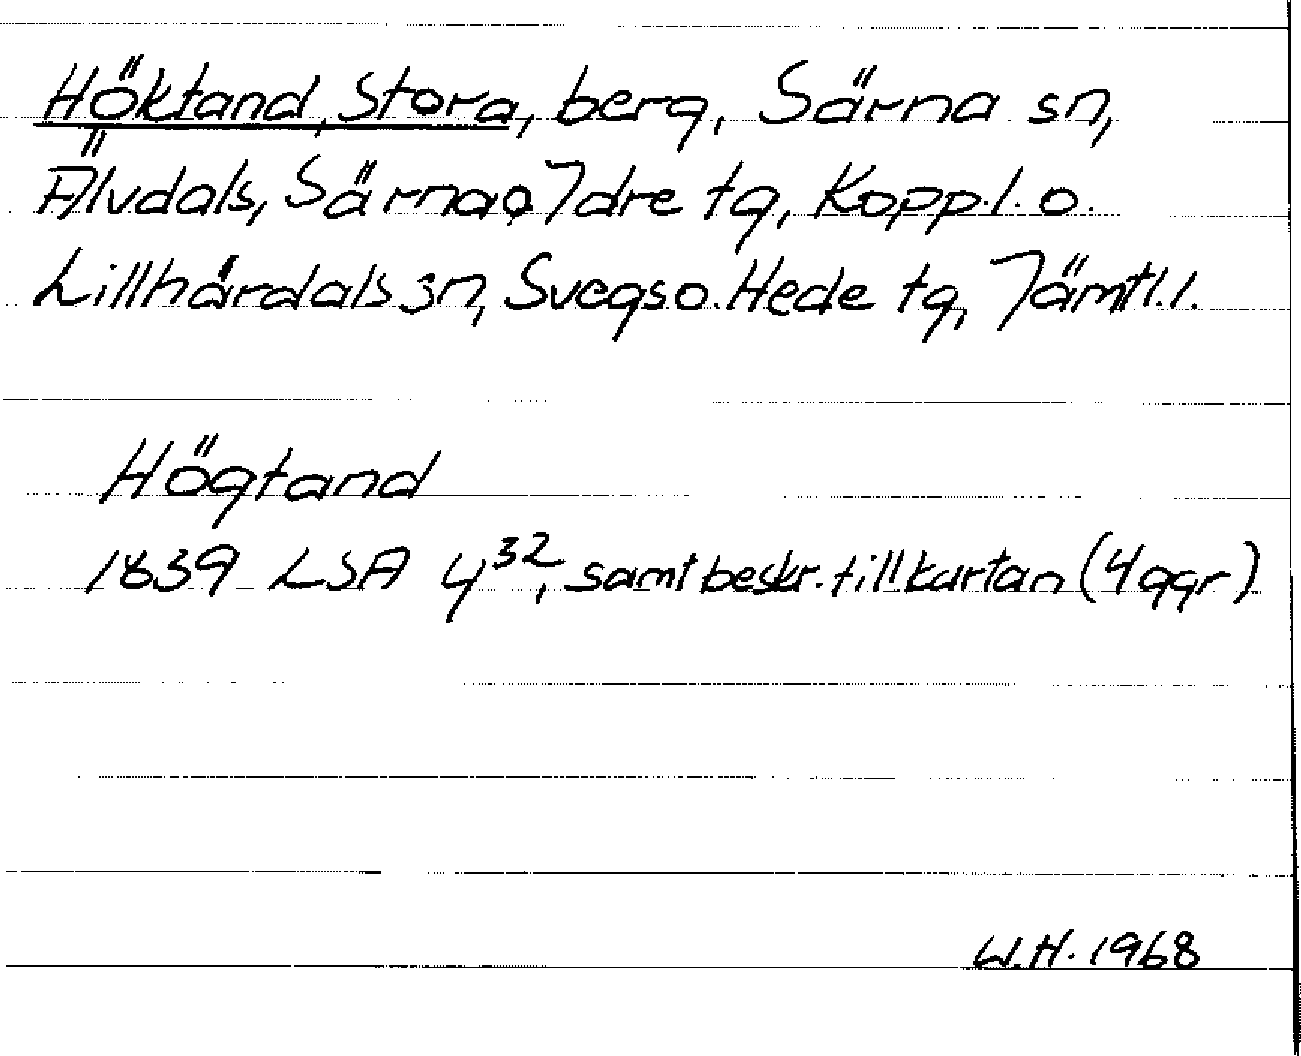 Höktand, Stora, berg, Särna sn,
Älvdals, Särna o Idre tg, Kopp.l. o.
Lillhärdals sn, Svegs o. Hede tg, Jämtl.l.
Högtand
1839 LSA Y³², samt beskr. till kartan (4 ggr)
W.H. 1968